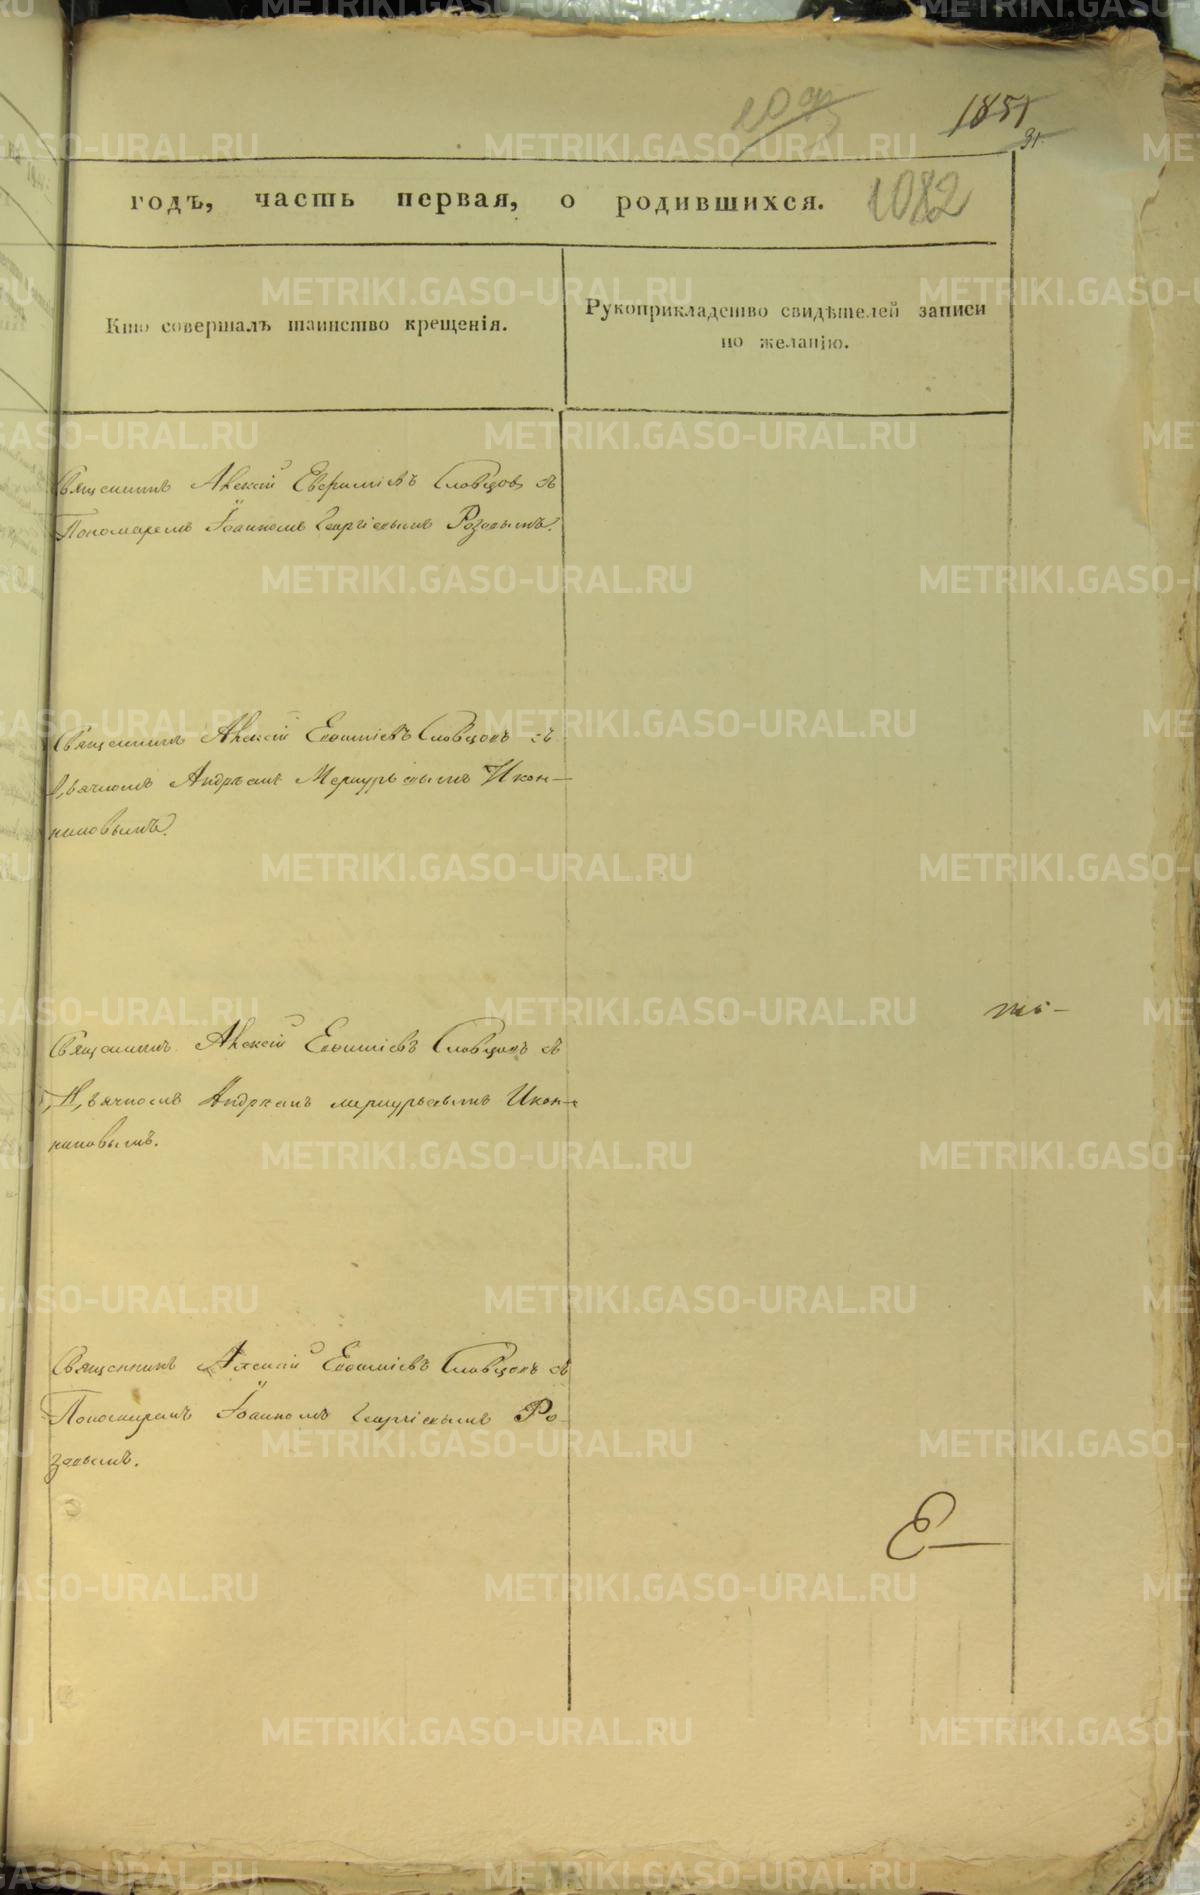 1851
1082
годъ, часть первая, о родившихся.
Кто совершалъ таинство крещенія.
Рукоприкладство свидѣтелей записи
по желанію.
Священникъ Алексій Евфиміевъ Словцовъ съ
Пономаремъ Іоанномъ Георгіевымъ Розовымъ.
Священникъ Алексій Евфиміевъ Словцовъ съ
Дьячкомъ Андреемъ Меркурьевымъ Икон-
никовымъ.
Священникъ Алексій Евфиміевъ Словцовъ съ
Дьячкомъ Андреемъ Меркурьевымъ Икон-
никовымъ.
Священникъ Алексій Евфиміевъ Словцовъ съ
Пономаремъ Іоанномъ Георгіевымъ Ро-
зовымъ.
METRIKI.GASO-URAL.RU